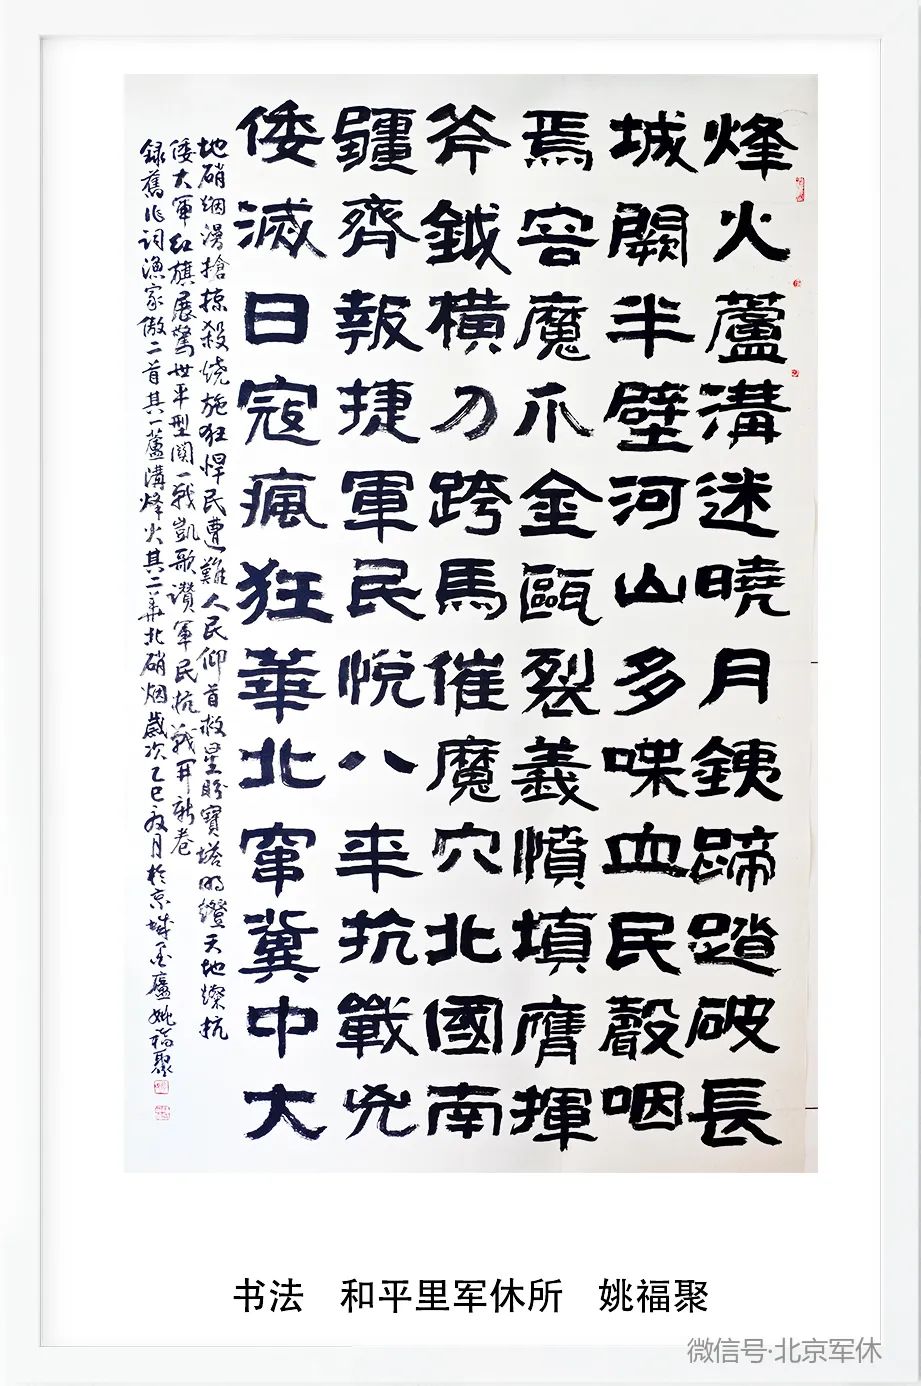 烽火蘆溝迷曉月銕蹄踏破長
城闕半壁河山多喋血民聲咽
焉容魔爪金甌裂義憤填膺揮
斧鉞橫刀跨馬催魔穴北國南
疆齊報捷軍民悅八年抗戰兇
倭滅日寇瘋狂華北窜冀中大
地硝烟漫搶掠殺燒施狂悍民遭難人民仰首救星盼寶塔明燈天地燦抗
倭大軍红旗展驚世平型関一戰凱歌讚軍民抗戰开新卷
録舊作詞漁家傲二首其一蘆溝烽火其二華北硝烟歲次乙巳夏月於京城墨廬姚福聚
书法 和平里军休所 姚福聚
微信号·北京军休